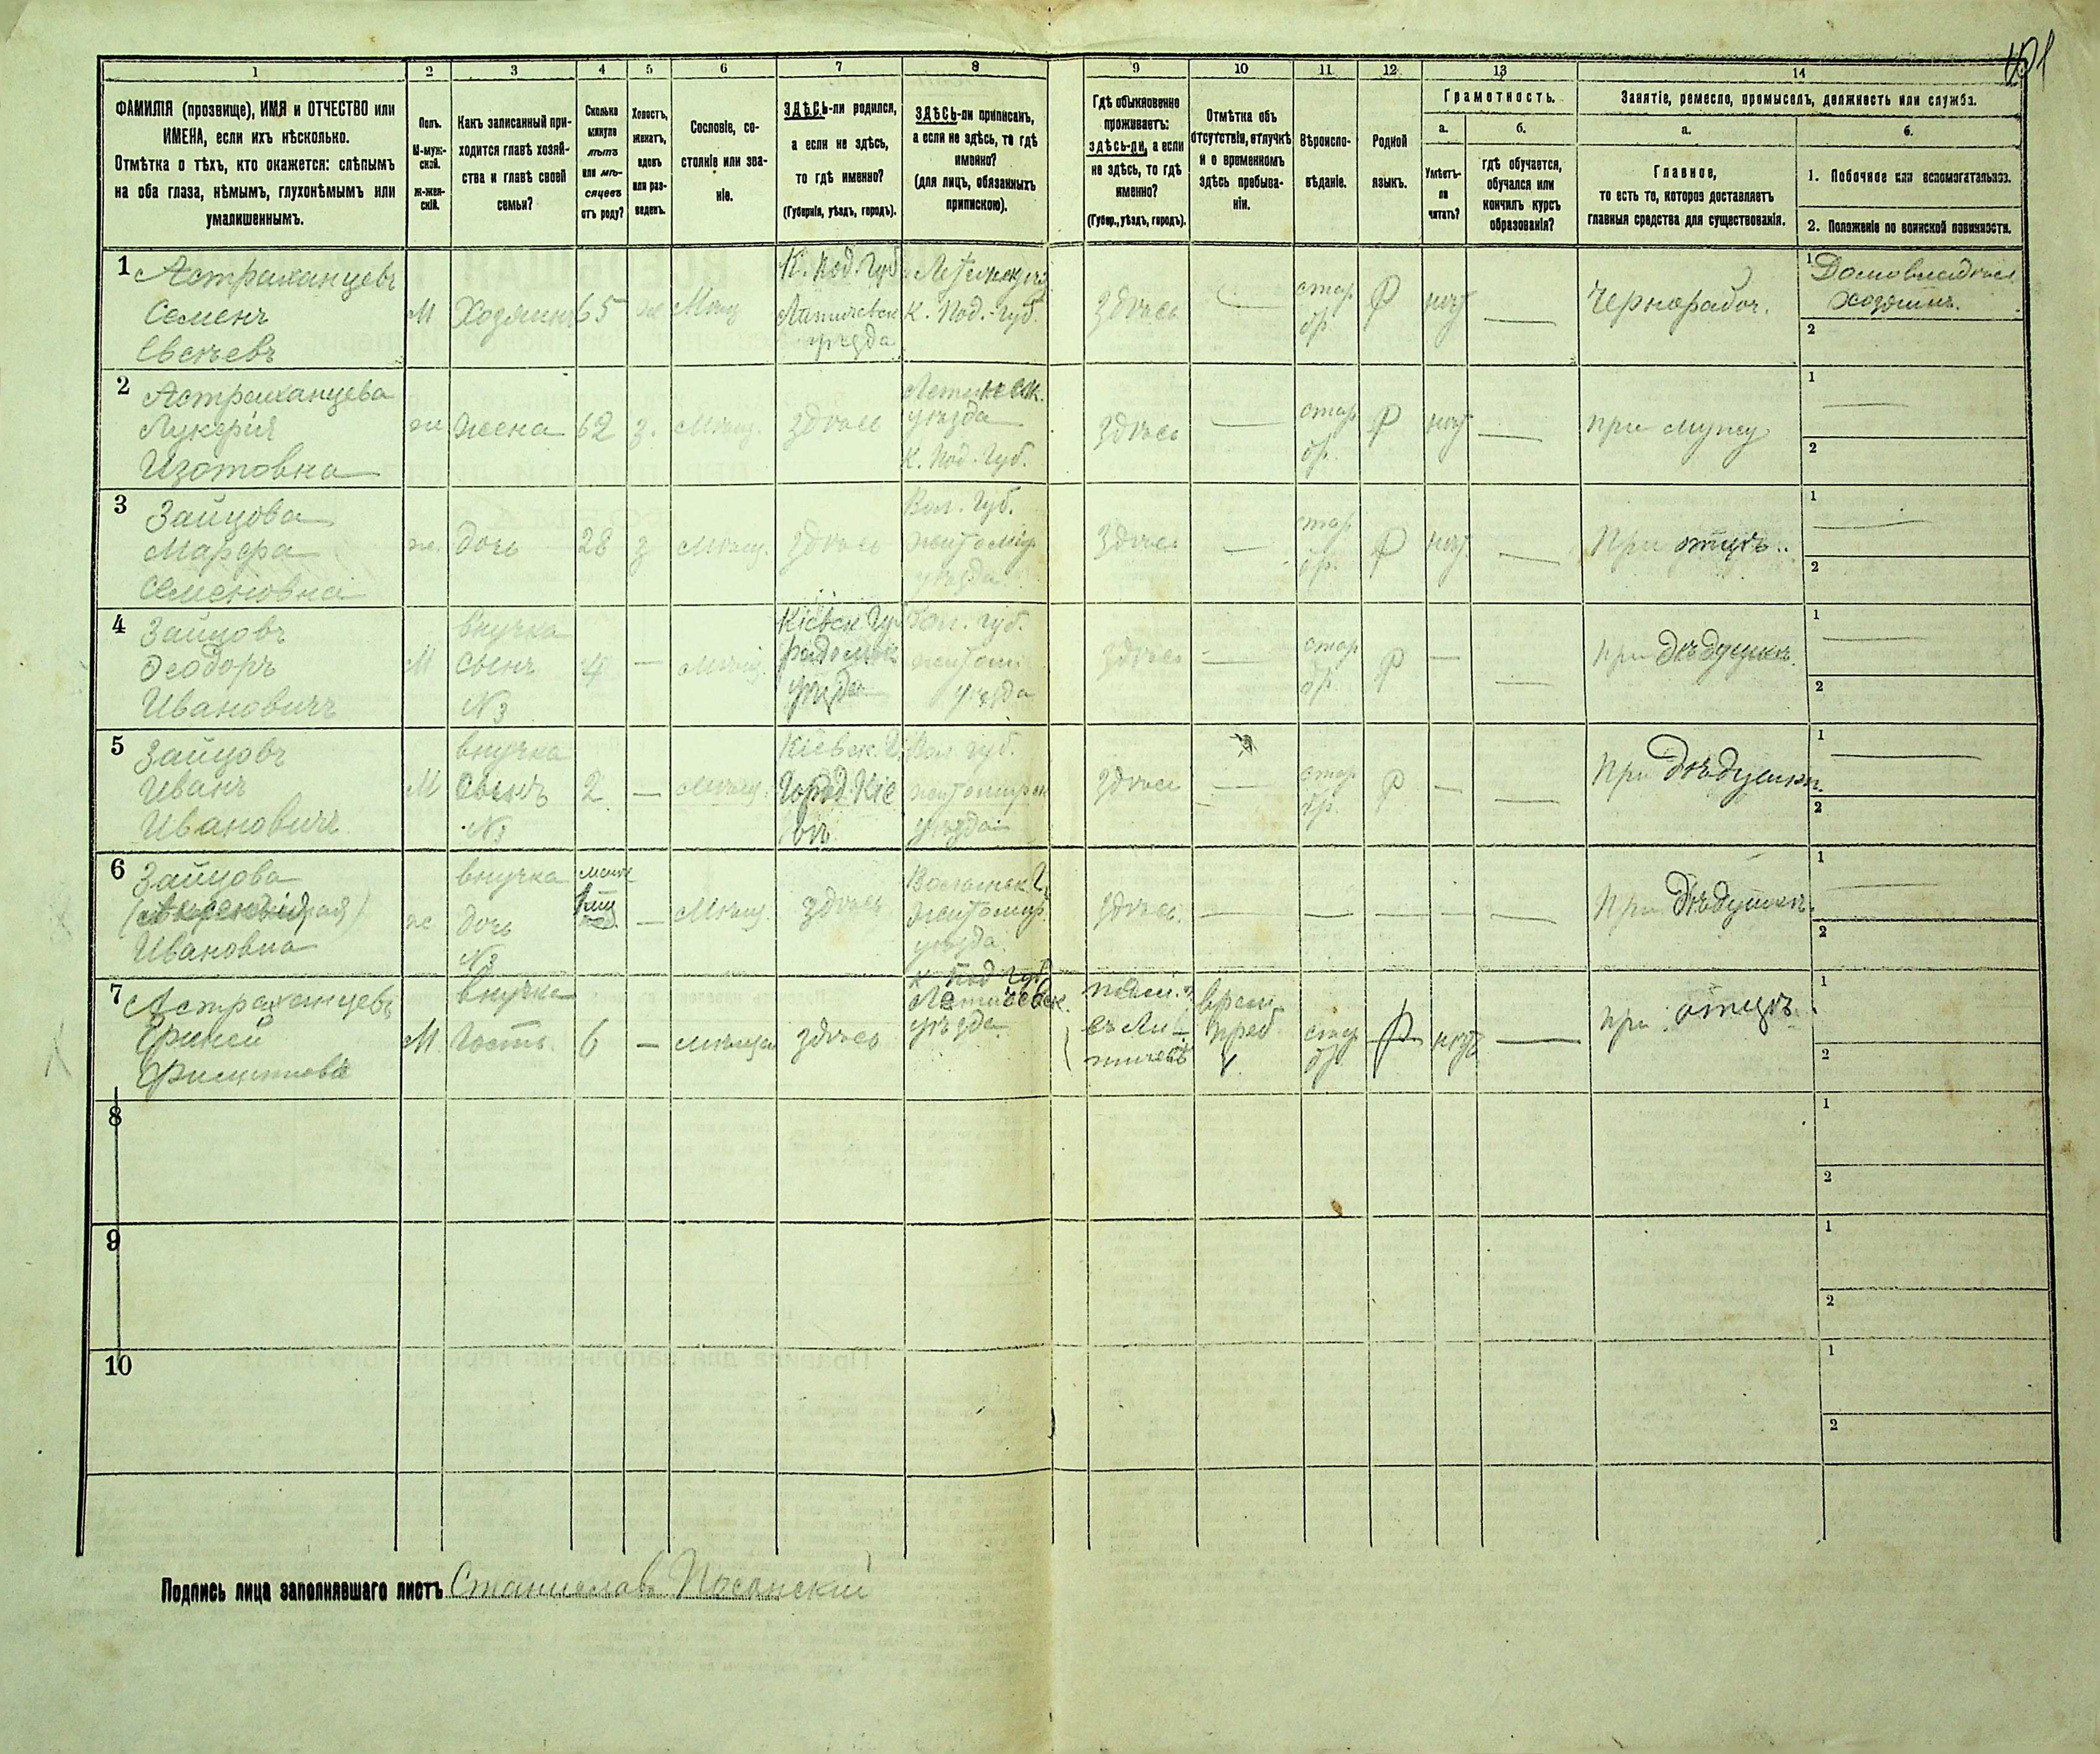 1 2 3 4 5 6 7 8 9 10 11 12 13 14
ФАМИЛІЯ (прозвище), ИМЯ и ОТЧЕСТВО или
ИМЕНА, если ихъ нѣсколько.
Отмѣтка о тѣхъ, кто окажется: слѣпымъ
на оба глаза, нѣмымъ, глухонѣмымъ или
умалишеннымъ.
Полъ.
М-муж-
ской.
Ж-жен-
скій.
Какъ записанный при-
ходится главѣ хозяй-
ства и главѣ своей
семьи?
Сколько
минуло
лѣтъ
или мѣ-
сяцевъ
отъ роду?
Холостъ,
женатъ,
вдовъ
или раз-
веденъ.
Сословіе, со-
стояніе или зва-
ніе.
ЗДѢСЬ-ли родился,
а если не здѣсь,
то гдѣ именно?
(Губернія, уѣздъ, городъ).
ЗДѢСЬ-ли приписанъ,
а если не здѣсь, то гдѣ
именно?
(для лицъ, обязанныхъ
припискою).
Гдѣ обыкновенно
проживаетъ:
здѣсь-ли, а если
не здѣсь, то гдѣ
именно?
(Губер., уѣздъ, городъ).
Отмѣтка объ
отсутствіи, отлучкѣ
и о временномъ
здѣсь пребыва-
ніи.
Вѣроиспо-
вѣданіе.
Родной
языкъ.
Грамотность.
а.
Умѣетъ-
ли
читать?
б.
гдѣ обучается,
обучался или
кончилъ курсъ
образованія?
Занятіе, ремесло, промыселъ, должность или служба.
а.
Главное,
то есть то, которое доставляетъ
главныя средства для существованія.
б.
1. Побочное или вспомогательное.
2. Положеніе по воинской повинности.
1
Астраханцевъ
Семенъ
М
Хозяинъ
65
К. Под. Губ.
уѣзда
К. Под. Губ.
здѣсь
стар.
обр.
Р
нѣт
—
Чернорабоч.
1
Домовладѣл
хозяинъ.
2
2
Астраханцева
Лукерія
Изотовна
ж
жена
62
з.
Мѣщ.
здѣсь
уѣзда
К. Под. Губ.
здѣсь
—
стар.
обр.
Р
нѣт
—
при мужу
1
—
2
3
Зайцова
Марфа
Семеновна
ж.
дочь
28
з
Мѣщ.
здѣсь
Вол. Губ.
Житомір
уѣзда
здѣсь
—
стар.
обр.
Р
нѣт
—
При отцѣ.
1
—
2
4
Зайцовъ
Ѳеодоръ
Ивановичъ
М
внучка
сынъ
№3
4
—
Мѣщ.
Кіевск. Гу
Радомск
уѣзда
Вол. Губ.
Житом.
уѣзда
здѣсь
—
стар.
обр.
Р
—
—
при дѣдушкѣ.
1
—
2
5
Зайцовъ
Иванъ
Ивановичъ
М
внучка
сынъ
№3
2
—
Мѣщ.
Кіевск. Г.
Город Кіе
въ
Вол. Губ.
уѣзда
здѣсь
—
стар.
обр.
Р
—
—
При дѣдушки.
1
—
2
6
Зайцова
Ивановна
ж
внучка
дочь
№3
—
Мѣщ.
здѣсь
Житомір
уѣзда.
здѣсь.
— — — — —
При дѣдушкѣ.
1
—
2
7
Астраханцевъ
М
внучка
Гость.
6
—
здѣсь
К. Под. Губ.
Летичевск.
уѣзда
врем.
преб
стар
обр.
Р
нѣтъ
—
при отцѣ.
1
2
8
1
2
9
1
2
10
1
2
Подпись лица заполнявшаго листъ Станиславъ